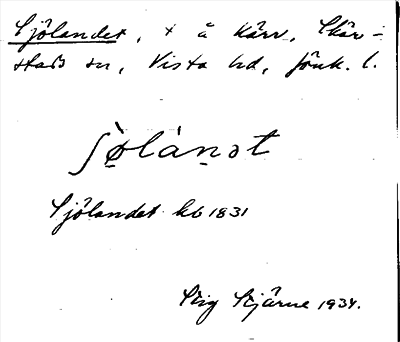 Sjölandet, + å Kärr, Skär-
stads sn, Vista hd, Jönk. l.
ʃø̀lánət
Sjölandet kb 1831
Stig Stjärne 1934.